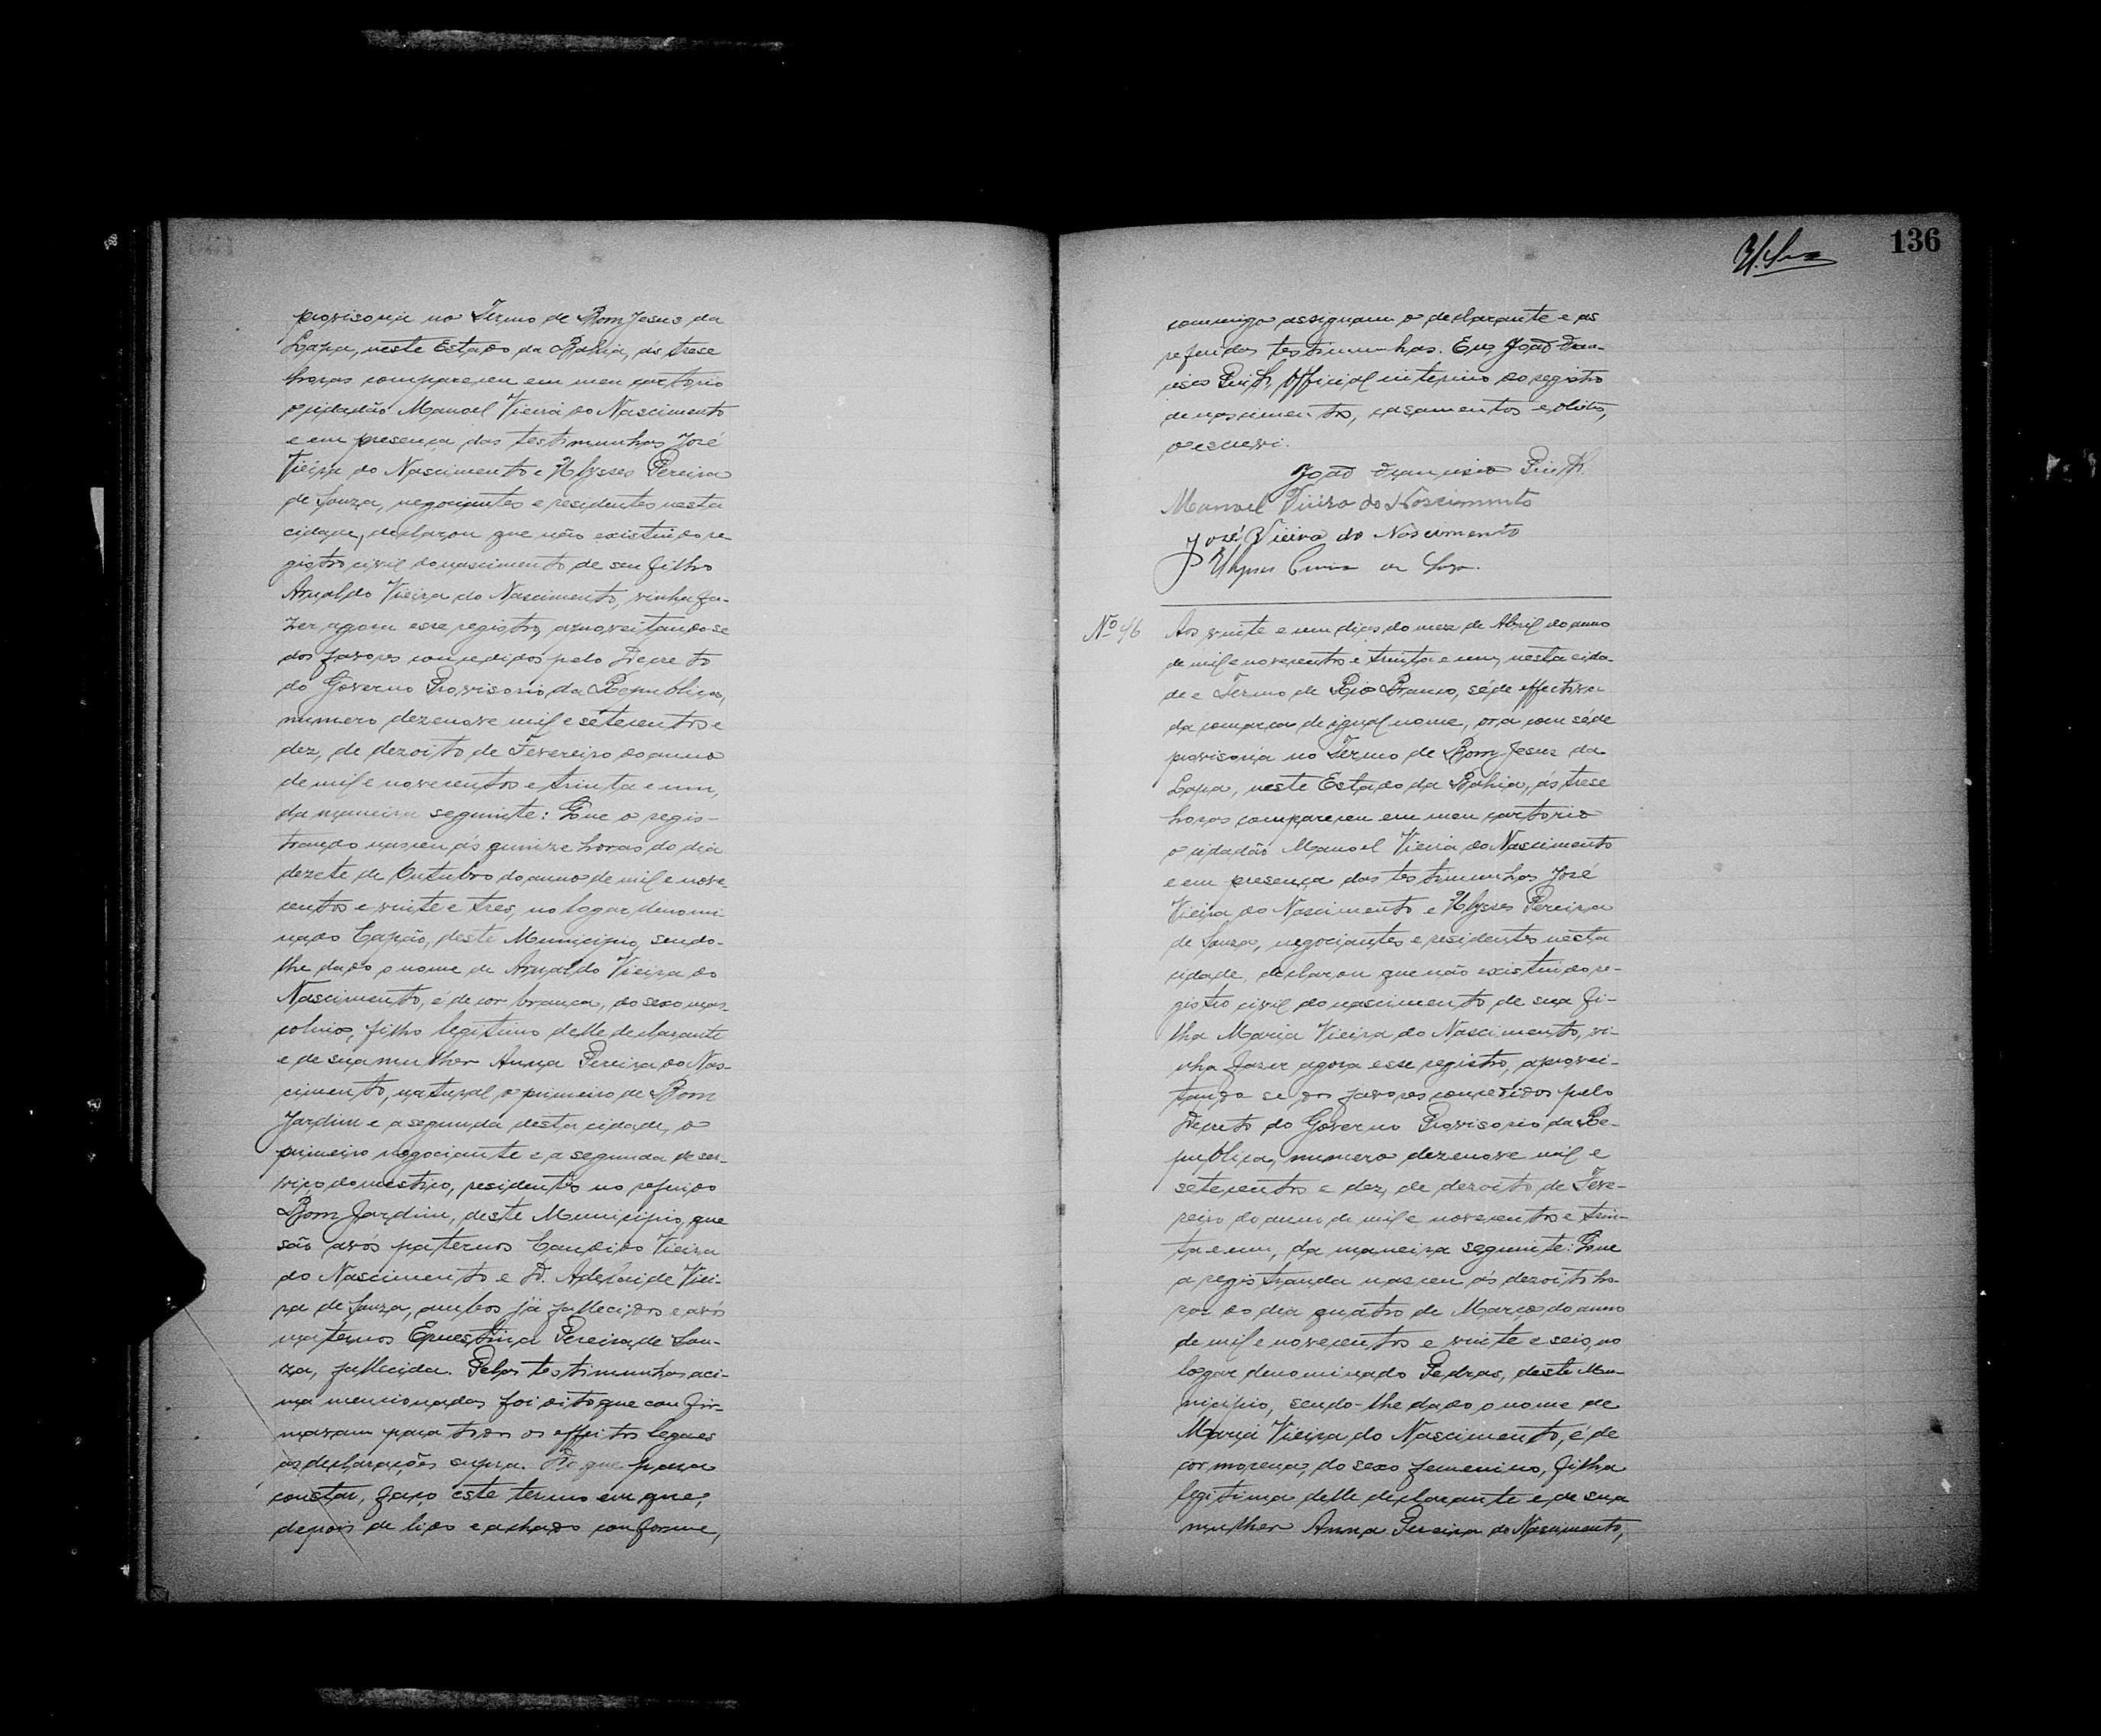 provisoria no Termo de Bom Jesus da
Lapa, neste Estado da Bahia, ás trese
horas compareceu em meu cartorio
o cidadão Manoel Vieira do Nascimento
e em presença das testimunhas José
Vieira do Nascimento e Ulysses Pereira
de Souza, negociantes e residentes nesta
cidade, declarou que não existindo re
gistro civil do nascimento de seu filho
Arnaldo Vieira do Nascimento, vinha fa-
zer agora esse registro, aproveitando se
dos favores concedidos pelo Decreto
do Governo Provisorio da Republica,
numero dezenove mil e setecentos e
dez, de dezoito de Fevereiro do anno
de mil e novecentos e trinta e um,
da maneira seguinte: Que o regis-
trando nasceu ás quinze horas do dia
dezete de Outubro do anno de mil e nove-
centos e vinte e tres, no logar denomi-
nado Capão, deste Municipio, sendo-
lhe dado o nome de Arnaldo Vieira do
Nascimento, é de cor branca, do sexo mas-
colino, filho legitimo delle declarante
e de sua mulher Anna Pereira do Nas-
cimento, natural o primeiro de Bom
Jardim e a segunda desta cidade, o
primeiro negociante e a segunda de ser-
viço domestico, residentes no referido
Bom Jardim, deste Municipio, que
são avós paternos Candido Vieira
do Nascimento e D. Adelaide Viei-
ra de Souza, ambos já fallecidos e avós
maternos Ernestina Pereira de Sou-
za, fallecida. Pelas testimunhas aci-
ma mencionadas foi dito que confir-
mavam para todos os effeitos legaes
as declarações supra. Do que para
constar, faço este termo em que,
depois de lido e achado conforme,
136
commigo assignam o declarante e as
referidas testimunhas. Eu, João Fran-
cisco Official interino do registro
de nascimentos, casamentos e obitos,
o escrevi.
João Francisco
Manoel Vieira do Nascimento
José Vieira do Nascimento
Ulysses de
Nº 46
Aos vinte e um dias do mez de Abril do anno
de mil e novecentos e trinta e um, nesta cida-
de e Termo de Rio Branco, séde effectiva
da comarca de igual nome, ora com séde
provisoria no Termo de Bom Jesus da
Lapa, neste Estado da Bahia, ás trese
horas compareceu em meu cartorio
o cidadão Manoel Vieira do Nascimento
e em presença das testimunhas José
Vieira do Nascimento e Ulysses Pereira
de Souza, negociantes e residentes nesta
cidade, declarou que não existindo re-
gistro civil do nascimento de sua fi-
lha Maria Vieira do Nascimento, vi-
nha fazer agora esse registro, aprovei-
tando se dos favores concedidos pelo
Decreto do Governo Provisorio da Re-
publica, numero dezenove mil e
setecentos e dez, de dezoito de Feve-
reiro do anno de mil e novecentos e trin-
ta e um, da maneira seguinte: Que
a registranda nasceu ás dezoito ho-
ras do dia quatro de Março do anno
de mil e novecentos e vinte e seis, no
logar denominado Pedras, deste Mu-
nicipio, sendo-lhe dado o nome de
Maria Vieira do Nascimento, é de
cor morena, do sexo femenino, filha
legitima delle declarante e de sua
mulher Anna Pereira do Nascimento,